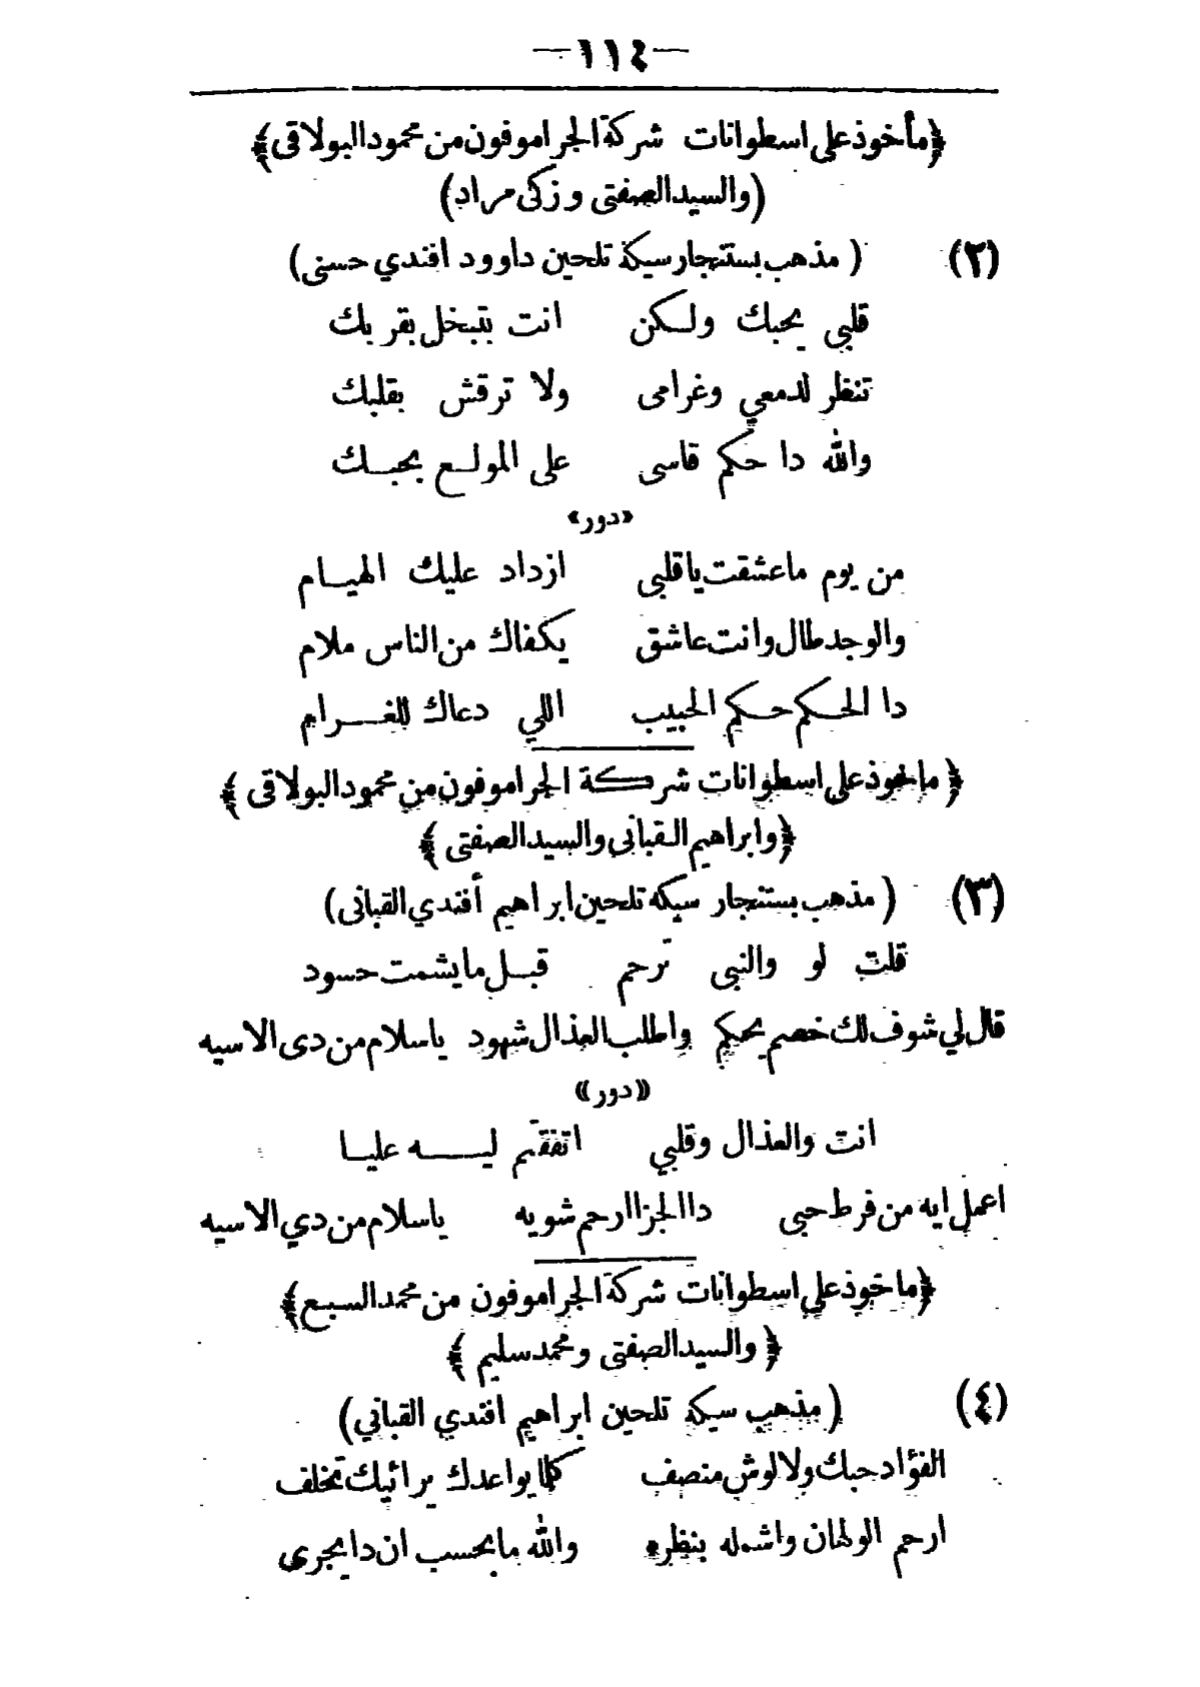 —١١٤—
﴿مأخوذ على اسطوانات شركة الجراموفون من محمود البولاقى﴾
(والسيد الصفتى وزكى مراد)
(٢) ( مذهب بستنجار سيكة تلحين داوود افندي حسنى)
قلبي يحبك ولكن انت بتبخل بقربك
تنظر لدمعي وغرامى ولا ترقش بقلبك
والله دا حكم قاسى على المولع بحبك
«دور»
من يوم ما عشقت يا قلبى ازداد عليك الهيام
والوجد طال وانت عاشق يكفاك من الناس ملام
دا الحكم حكم الحبيب اللي دعاك للغرام
﴿ ماخوذ على اسطوانات شركة الجراموفون من محمود البولاقى ﴾
﴿وابراهيم القباني والسيد الصفتى ﴾
(٣) ( مذهب بستنجار سيكه تلحين ابراهيم أفندي القبانى)
قلت لو والنبى ترحم قبل ما يشمت حسود
قال لي شوف لك خصم يحكم واطلب العذال شهود ياسلام من دى الاسيه
«دور»
انت والعذال وقلبي اتفقتم ليه عليا
اعمل ايه من فرط حبى دا الجزا ارحم شويه ياسلام من دي الاسيه
﴿ماخوذ على اسطوانات شركة الجراموفون من محمد السبع﴾
﴿ والسيد الصفتى ومحمد سليم ﴾
(٤) ( مذهب سيكه تلحين ابراهيم افندي القباني)
الفؤاد حبك ولا لوش منصف كلما يواعدك برائيك تخلف
ارحم الولهان واشمله بنظره والله ما بحسب ان دا يجرى